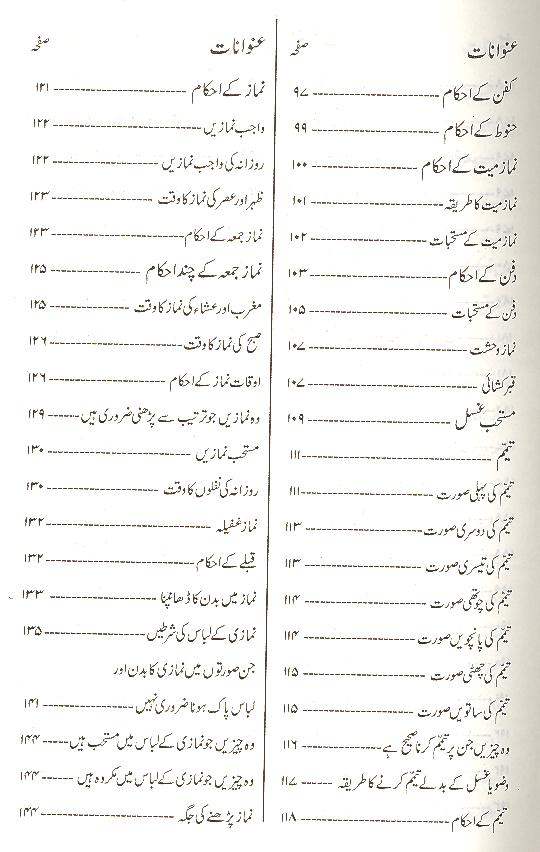 عنوانات صفحہ
کفن کے احکام ۹۷
حنوط کے احکام ۹۹
نماز میت کے احکام ۱۰۰
نماز میت کا طریقہ ۱۰۱
نماز میت کے مستحبات ۱۰۲
دفن کے احکام ۱۰۳
دفن کے مستحبات ۱۰۵
نماز وحشت ۱۰۷
قبر کشائی ۱۰۷
مستحب غسل ۱۰۹
تیمّم ۱۱۱
تیمّم کی پہلی صورت ۱۱۱
تیمّم کی دوسری صورت ۱۱۳
تیمّم کی تیسری صورت ۱۱۳
تیمّم کی چوتھی صورت ۱۱۴
تیمّم کی پانچویں صورت ۱۱۴
تیمّم کی چھٹی صورت ۱۱۵
تیمّم کی ساتویں صورت ۱۱۵
وہ چیزیں جن پر تیمّم کرنا صحیح ہے ۱۱۶
وضو یا غسل کے بدلے تیمّم کرنے کا طریقہ ۱۱۷
تیمّم کے احکام ۱۱۸
عنوانات صفحہ
نماز کے احکام ۱۲۱
واجب نمازیں ۱۲۲
روزانہ کی واجب نمازیں ۱۲۲
ظہر اور عصر کی نماز کا وقت ۱۲۳
نماز جمعہ کے احکام ۱۲۳
نماز جمعہ کے چند احکام ۱۲۵
مغرب اور عشاء کی نماز کا وقت ۱۲۵
صبح کی نماز کا وقت ۱۲۶
اوقات نماز کے احکام ۱۲۶
وہ نمازیں جو ترتیب سے پڑھنی ضروری ہیں ۱۲۹
مستحب نمازیں ۱۳۰
روزانہ کی نفلوں کا وقت ۱۳۰
نماز غفیلہ ۱۳۲
قبلے کے احکام ۱۳۲
نماز میں بدن کا ڈھانپنا ۱۳۳
نمازی کے لباس کی شرطیں ۱۳۵
جن صورتوں میں نمازی کا بدن اور
لباس پاک ہونا ضروری نہیں ۱۴۱
وہ چیزیں جو نمازی کے لباس میں مستحب ہیں ۱۴۴
وہ چیزیں جو نمازی کے لباس میں مکروہ ہیں ۱۴۴
نماز پڑھنے کی جگہ ۱۴۴